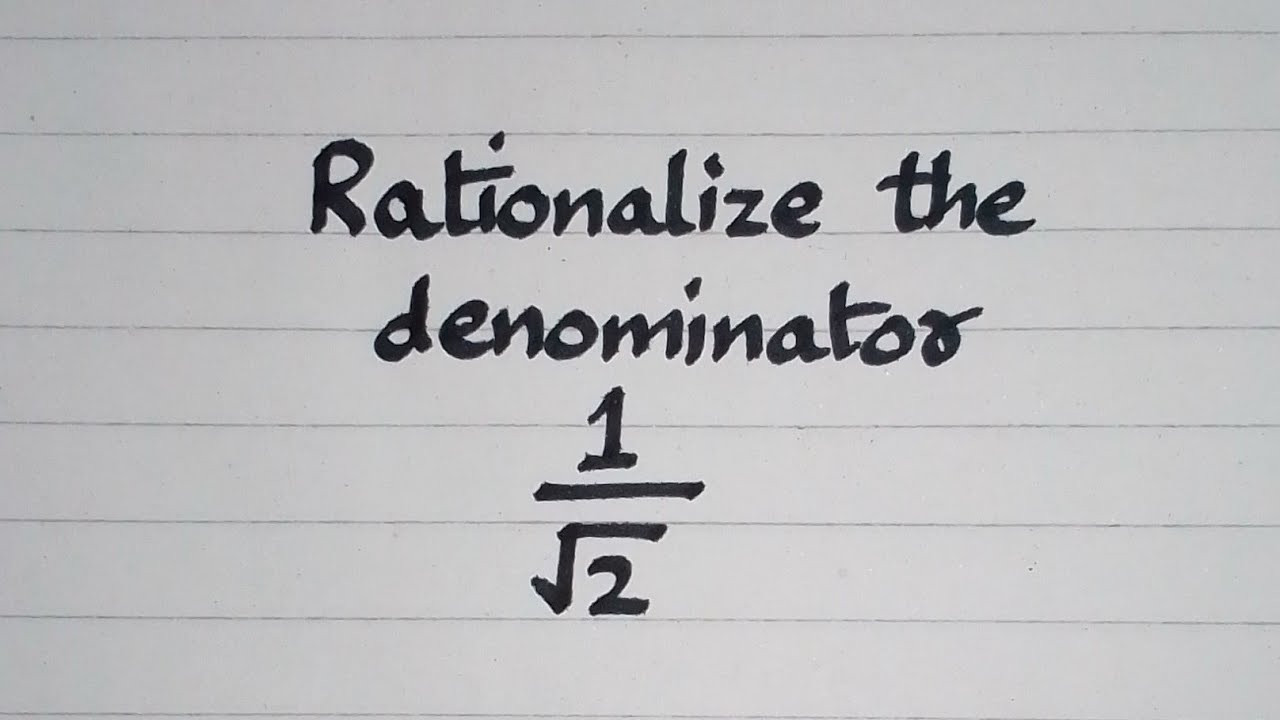 Rationalize the
denominator
1
√2